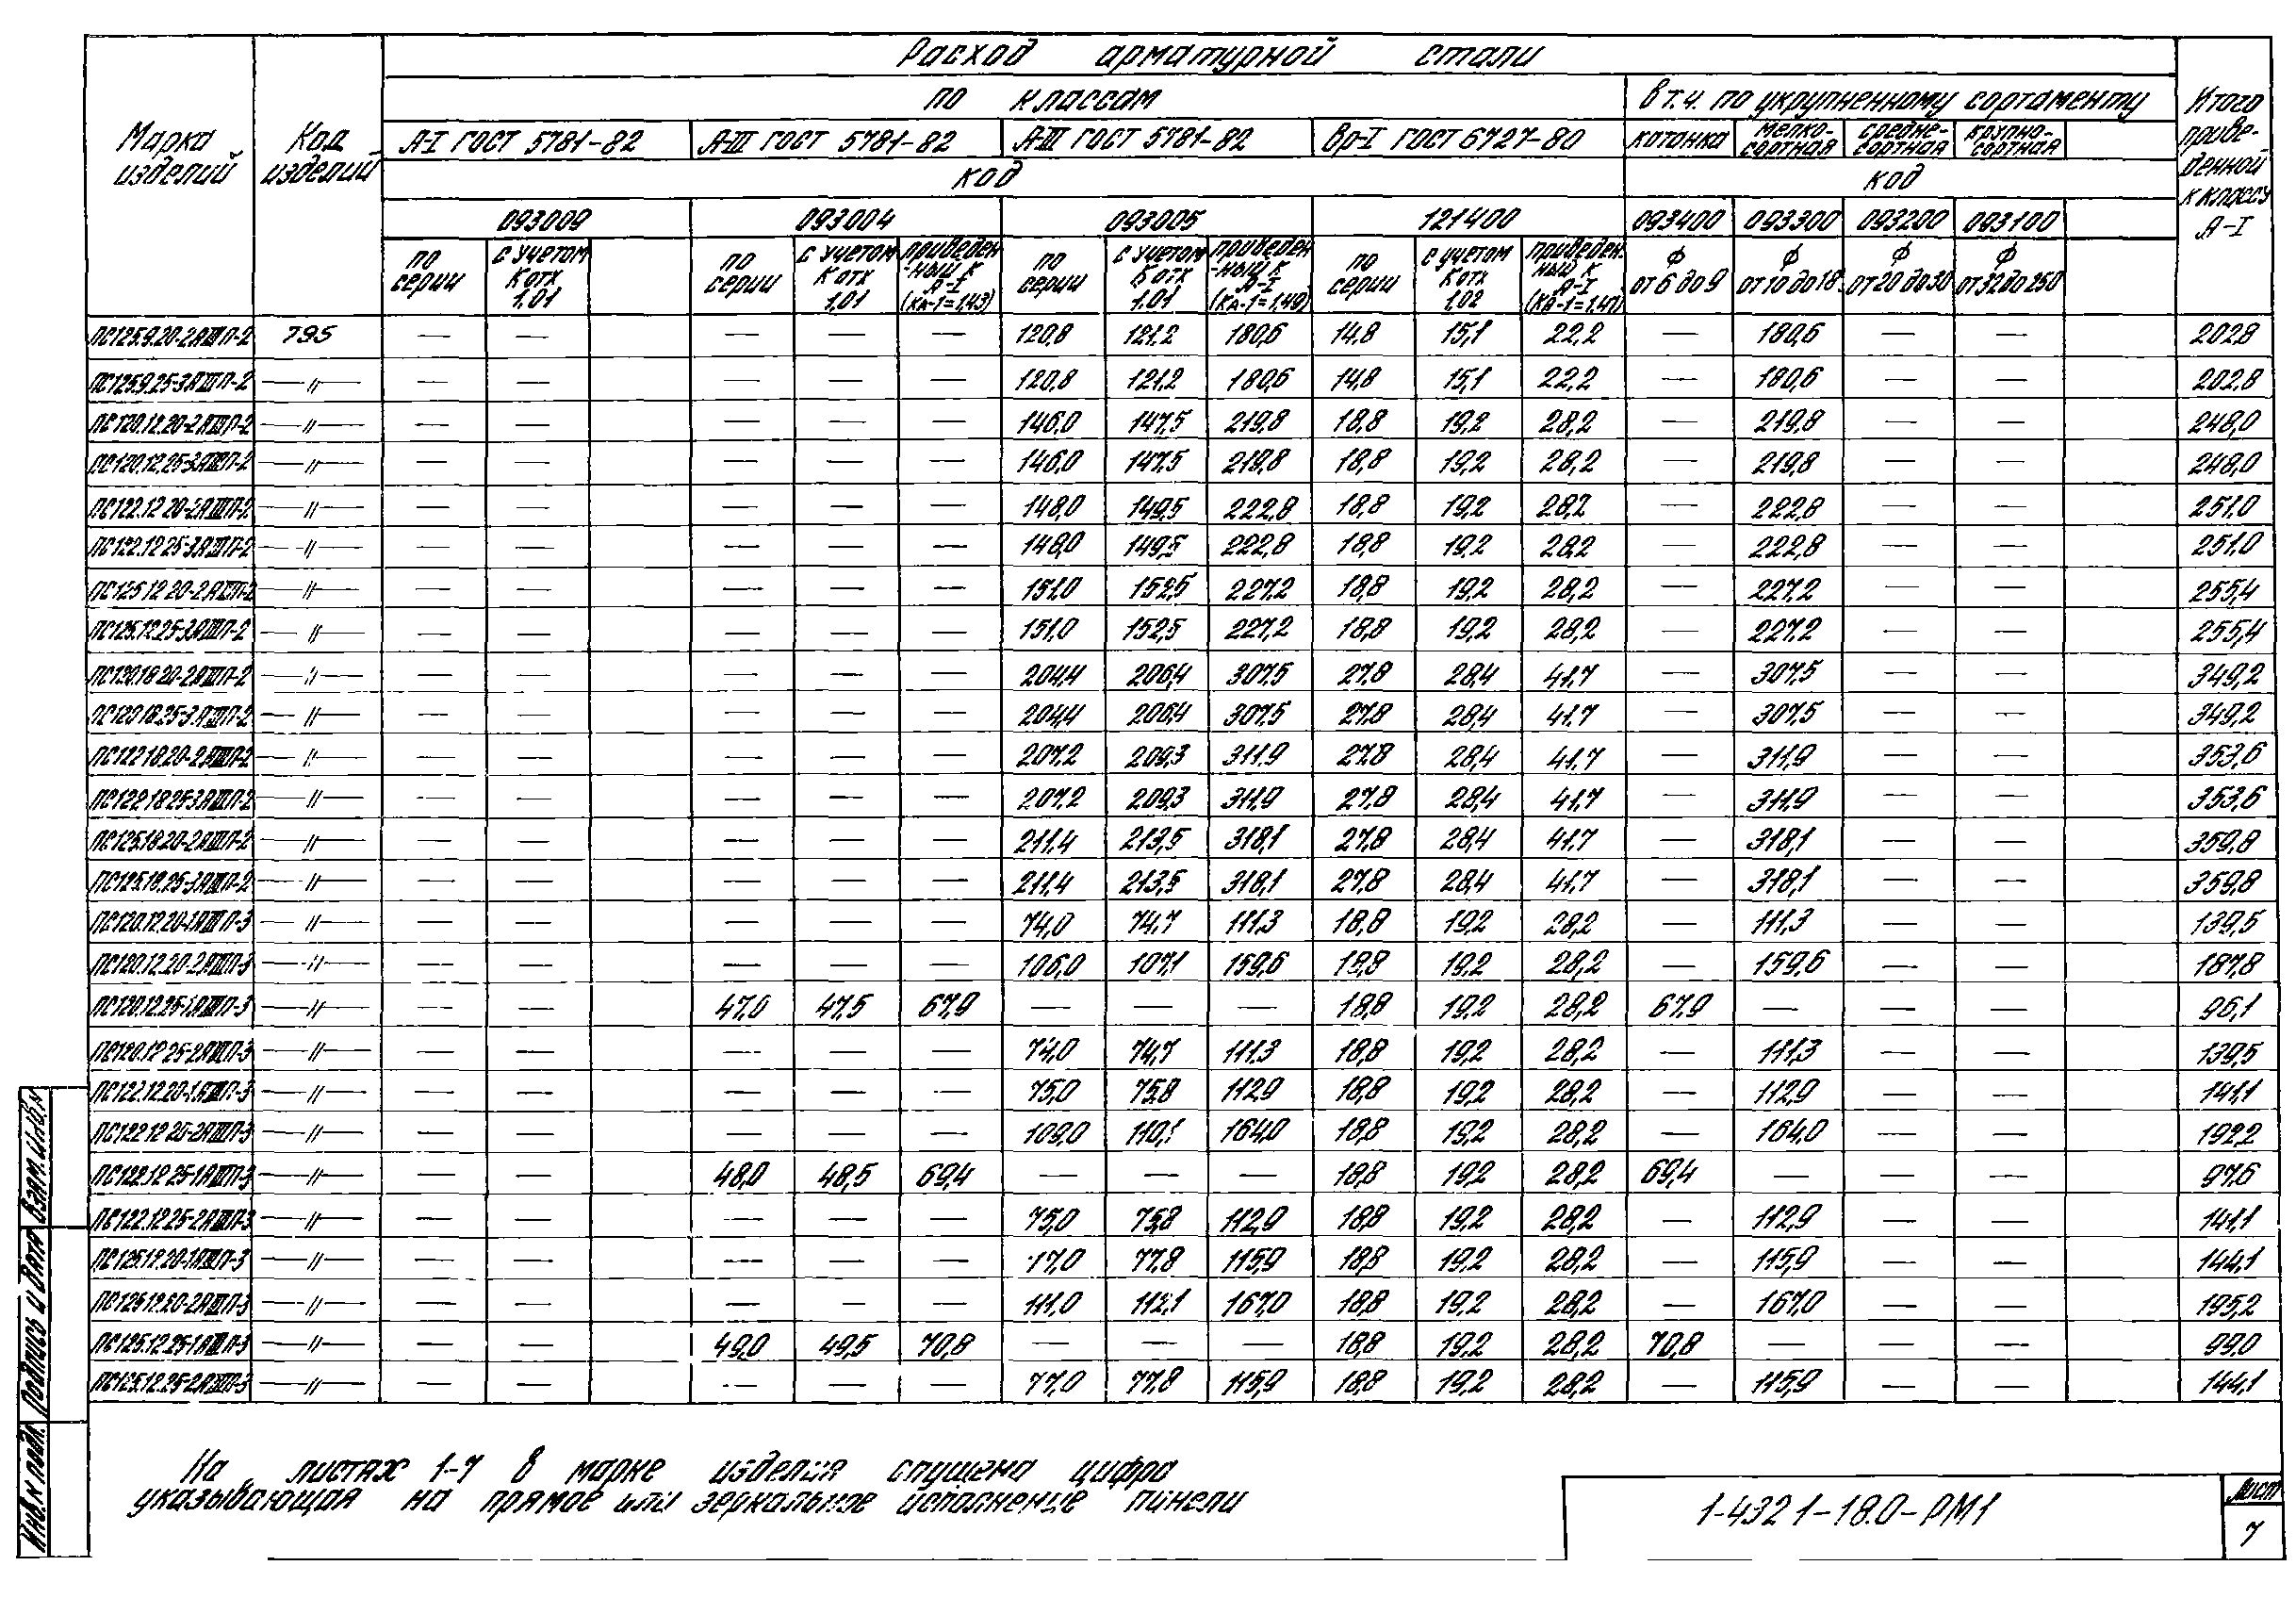 Расход арматурной стали
по классам
в т.ч. по укрупненному сортаменту
Марка изделий
Код изделий
Итого приведенной к классу А-I
А-I ГОСТ 5781-82 А-III ГОСТ 5781-82 А-III ГОСТ 5781-82 Вр-I ГОСТ 6727-80 катанка мелкосортная среднесортная крупносортная
код код
093009 093004 093005 121400 093400 093300 093200 093100
по серии с учетом Котх 1.01 по серии с учетом Котх 1.01 приведенный к А-I (КА-1=1,43) по серии с учетом Котх 1.01 приведенный к А-I (КА-1=1,49) по серии с учетом Котх 1.02 приведенный к А-I (КА-1=1,47) ф от 6 до 9 ф от 10 до 18 ф от 20 до 30 ф от 32 до 250
ПС125.9.20-2АIIIП-2 795 — — — — — 120,8 121,2 180,6 14,8 15,1 22,2 — 180,6 — — 202,8
ПС125.9.25-3АIIIП-2 —〃— — — — — — 120,8 121,2 180,6 14,8 15,1 22,2 — 180,6 — — 202,8
ПС120.12.20-2АIIIП-2 —〃— — — — — — 146,0 147,5 219,8 18,8 19,2 28,2 — 219,8 — — 248,0
ПС120.12.25-3АIIIП-2 —〃— — — — — — 146,0 147,5 219,8 18,8 19,2 28,2 — 219,8 — — 248,0
ПС122.12.20-2АIIIП-2 —〃— — — — — — 148,0 149,5 222,8 18,8 19,2 28,2 — 222,8 — — 251,0
ПС122.12.25-3АIIIП-2 —〃— — — — — — 148,0 149,5 222,8 18,8 19,2 28,2 — 222,8 — — 251,0
ПС125.12.20-2АIIIП-2 —〃— — — — — — 151,0 152,5 227,2 18,8 19,2 28,2 — 227,2 — — 255,4
ПС125.12.25-3АIIIП-2 —〃— — — — — — 151,0 152,5 227,2 18,8 19,2 28,2 — 227,2 — — 255,4
ПС120.18.20-2АIIIП-2 —〃— — — — — — 204,4 206,4 307,5 27,8 28,4 41,7 — 307,5 — — 349,2
ПС120.18.25-3АIIIП-2 —〃— — — — — — 204,4 206,4 307,5 27,8 28,4 41,7 — 307,5 — — 349,2
ПС122.18.20-2АIIIП-2 —〃— — — — — — 207,2 209,3 311,9 27,8 28,4 41,7 — 311,9 — — 353,6
ПС122.18.25-3АIIIП-2 —〃— — — — — — 207,2 209,3 311,9 27,8 28,4 41,7 — 311,9 — — 353,6
ПС125.18.20-2АIIIП-2 —〃— — — — — — 211,4 213,5 318,1 27,8 28,4 41,7 — 318,1 — — 359,8
ПС125.18.25-3АIIIП-2 —〃— — — — — — 211,4 213,5 318,1 27,8 28,4 41,7 — 318,1 — — 359,8
ПС120.12.20-1АIIIП-3 —〃— — — — — — 74,0 74,7 111,3 18,8 19,2 28,2 — 111,3 — — 139,5
ПС120.12.20-2АIIIП-3 —〃— — — — — — 106,0 107,1 159,6 18,8 19,2 28,2 — 159,6 — — 187,8
ПС120.12.25-1АIIIП-3 —〃— — — 47,0 47,5 67,9 — — — 18,8 19,2 28,2 67,9 — — — 96,1
ПС120.12.25-2АIIIП-3 —〃— — — — — — 74,0 74,7 111,3 18,8 19,2 28,2 — 111,3 — — 139,5
ПС122.12.20-1АIIIП-3 —〃— — — — — — 75,0 75,8 112,9 18,8 19,2 28,2 — 112,9 — — 141,1
ПС122.12.20-2АIIIП-3 —〃— — — — — — 109,0 110,1 164,0 18,8 19,2 28,2 — 164,0 — — 192,2
ПС122.12.25-1АIIIП-3 —〃— — — 48,0 48,5 69,4 — — — 18,8 19,2 28,2 69,4 — — — 97,6
ПС122.12.25-2АIIIП-3 —〃— — — — — — 75,0 75,8 112,9 18,8 19,2 28,2 — 112,9 — — 141,1
ПС125.12.20-1АIIIП-3 —〃— — — — — — 77,0 77,8 115,9 18,8 19,2 28,2 — 115,9 — — 144,1
ПС125.12.20-2АIIIП-3 —〃— — — — — — 111,0 112,1 167,0 18,8 19,2 28,2 — 167,0 — — 195,2
ПС125.12.25-1АIIIП-3 —〃— — — 49,0 49,5 70,8 — — — 18,8 19,2 28,2 70,8 — — — 99,0
ПС125.12.25-2АIIIП-3 —〃— — — — — — 77,0 77,8 115,9 18,8 19,2 28,2 — 115,9 — — 144,1
На листах 1-7 в марке изделия спущена цифра
указывающая на прямое или зеркальное исполнение панели
1-432 1-18.0-РМ1
Лист
7
Взам.инв.№
Подпись и дата
Инв.№ подл.